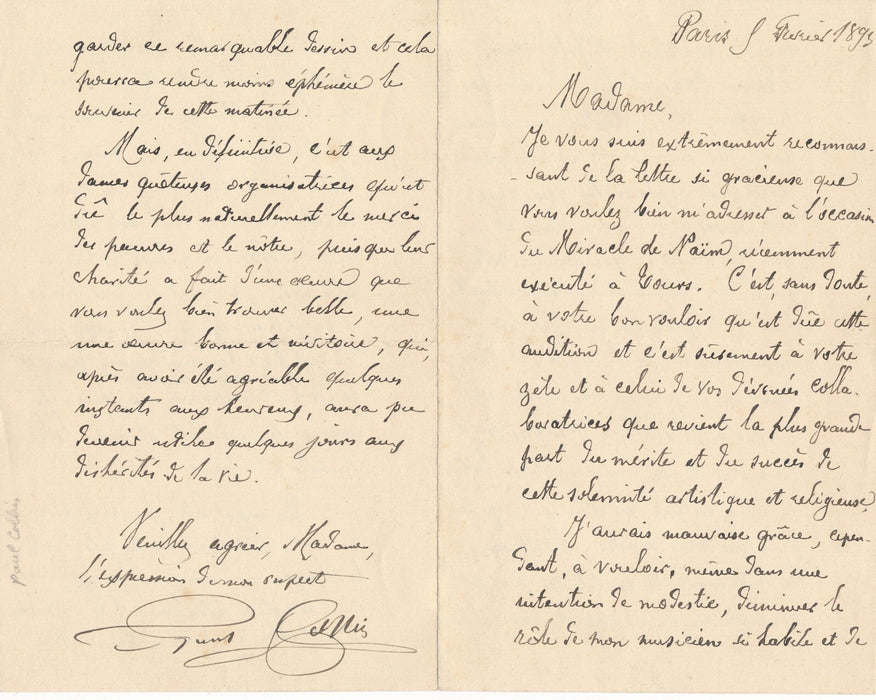 Paris 5 Février
Madame,
Je vous suis extrêmement reconnais-
-sant de la lettre si gracieuse que
vous voulez bien m'adresser à l'occasion
du Miracle de Naïm, récemment
exécuté à Tours. C'est, sans doute,
à votre bon vouloir qu'est dûe cette
audition et c'est sûrement à votre
zèle et à celui de vos dévouées colla-
boratrices que revient la plus grande
part du mérite et du succès de
cette solennité artistique et religieuse.
J'aurais mauvaise grâce, cepen-
dant, à vouloir, même dans une
intention de modestie, diminuer le
rôle de mon musicien si habile et de
garder ce remarquable dessin et cela
pourra rendre moins éphémère le
souvenir de cette matinée.
Mais, en définitive, c'est aux
dames quêteuses organisatrices qu'est
dû le plus naturellement le merci
des pauvres et le nôtre, puisque leur
charité a fait d'une oeuvre que
vous voulez bien trouver belle, une
une oeuvre bonne et méritoire, qui,
après avoir été agréable quelques
instants aux heureux, aura pu
devenir utile quelques jours aux
déshérités de la vie.
Veuillez agréer, Madame,
l'expression de mon respect
Paul Collin
Paul Collin